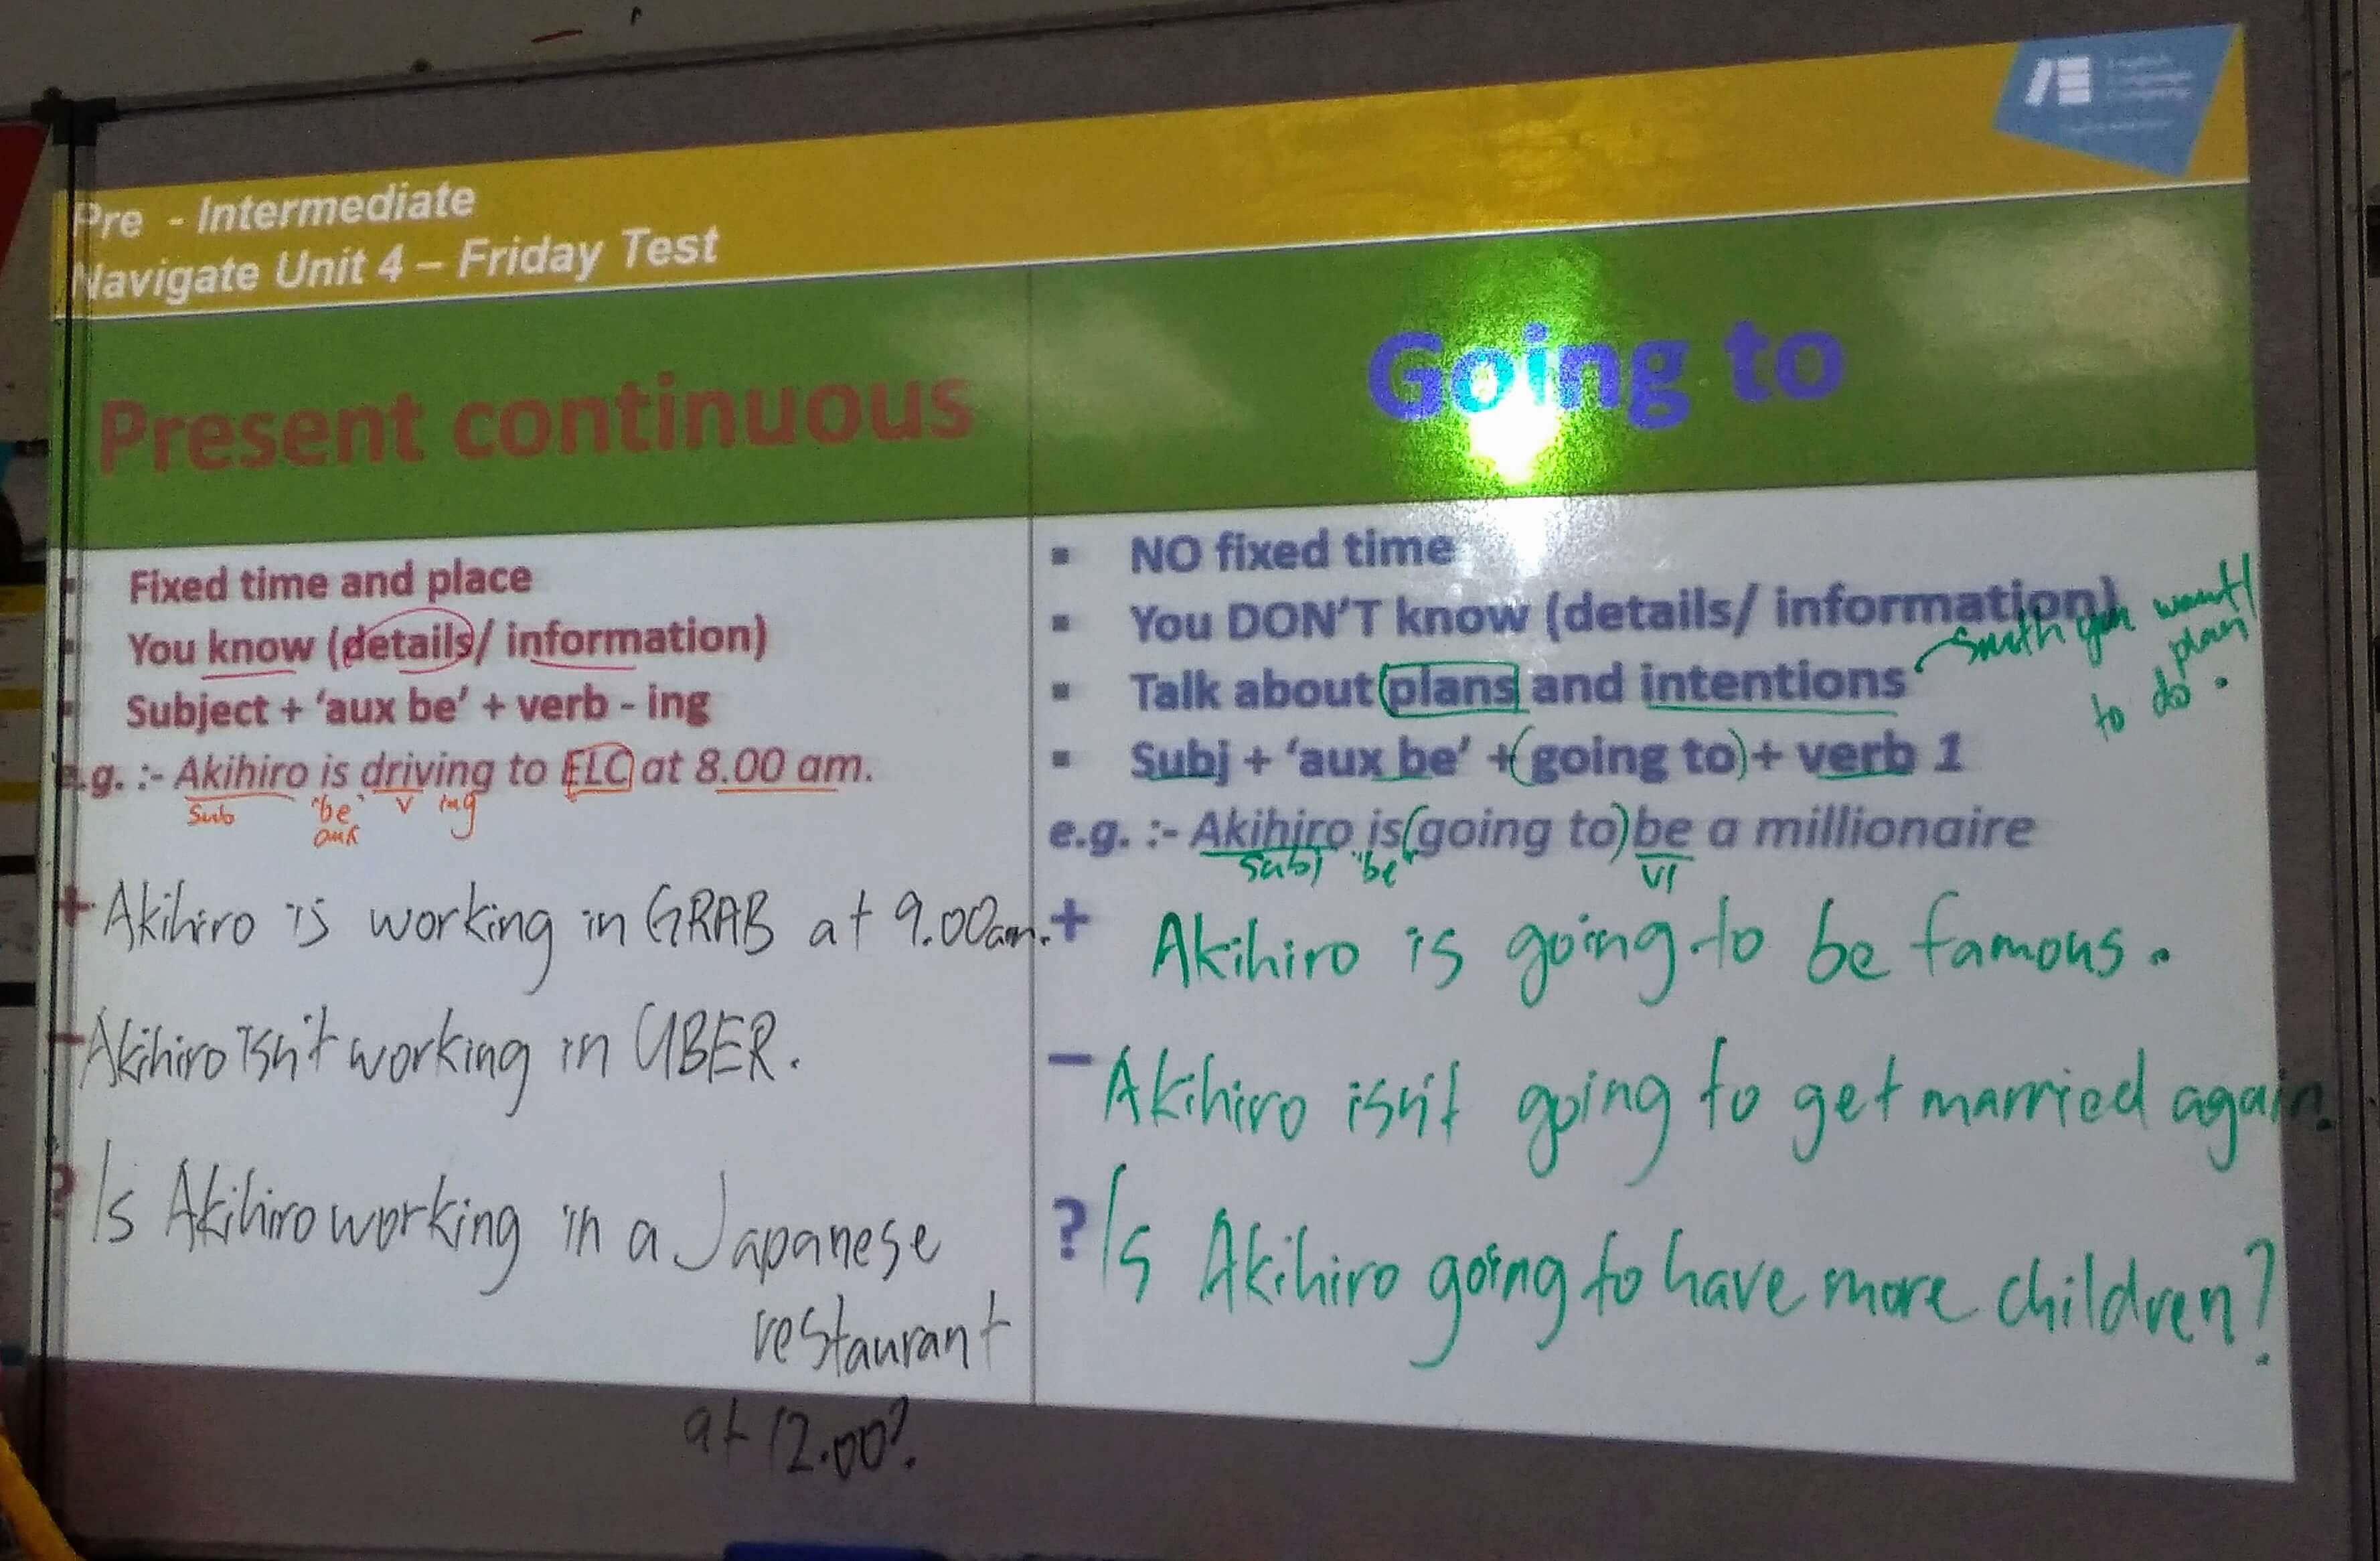 Pre - Intermediate
Navigate Unit 4 – Friday Test
Present continuous
Fixed time and place
You know (details/ information)
Subject + 'aux be' + verb - ing
e.g. :- Akihiro is driving to ELC at 8.00 am.
Sub 'be' V ing
aux
+ Akihiro is working in GRAB at 9.00am.
- Akihiro isn't working in UBER.
? Is Akihiro working in a Japanese
restaurant
at 12.00?
Going to
▪ NO fixed time
▪ You DON'T know (details/ information)
▪ Talk about plans and intentions
smth you want/
plan
to do.
▪ Subj + 'aux be' + (going to) + verb 1
e.g. :- Akihiro is (going to) be a millionaire
Subj "be" V1
+ Akihiro is going to be famous.
- Akihiro isn't going to get married again.
? Is Akihiro going to have more children?